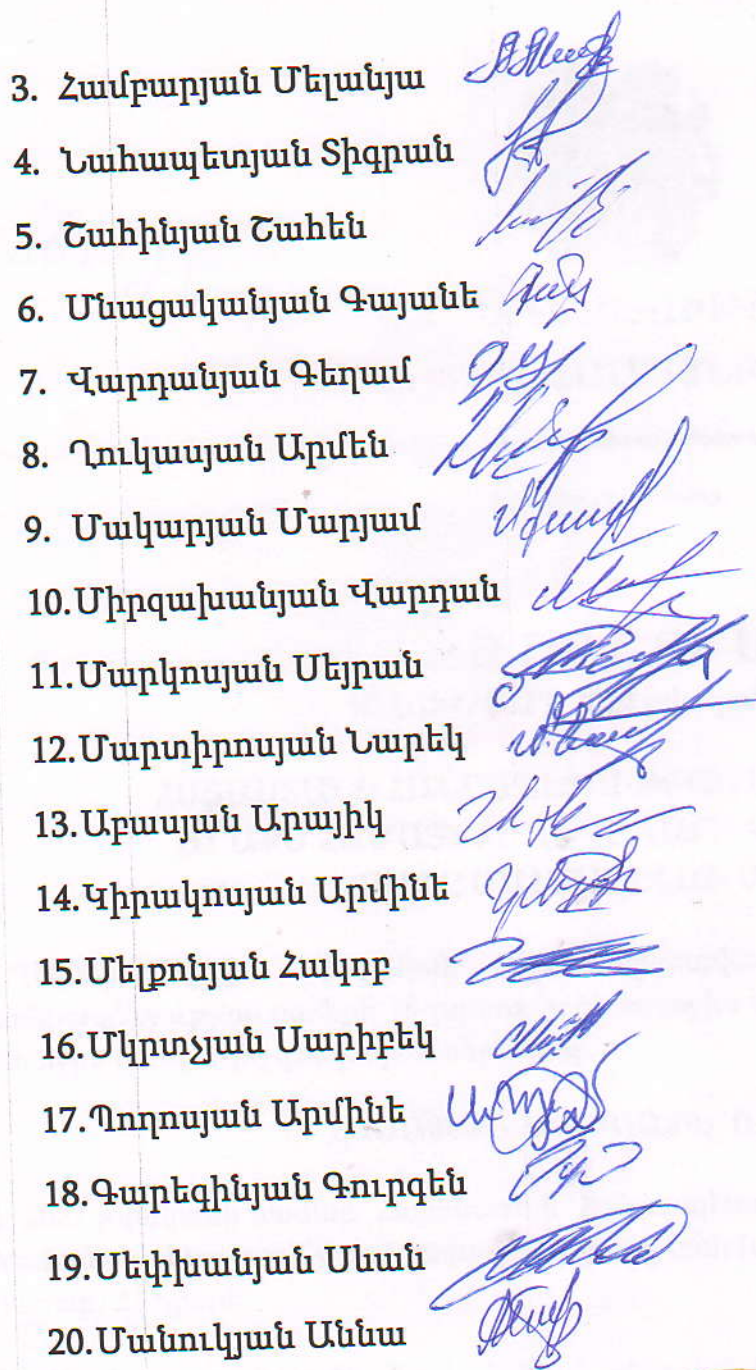 3. Համբարյան Մելանյա
4. Նահապետյան Տիգրան
5. Շահինյան Շահեն
6. Մնացականյան Գայանե
7. Վարդանյան Գեղամ
8. Ղուկասյան Արմեն
9. Մակարյան Մարյամ
10.Միրզախանյան Վարդան
11.Մարկոսյան Սեյրան
12.Մարտիրոսյան Նարեկ
13.Աբասյան Արայիկ
14.Կիրակոսյան Արմինե
15.Մելքոնյան Հակոբ
16.Մկրտչյան Սարիբեկ
17.Պողոսյան Արմինե
18.Գարեգինյան Գուրգեն
19.Սեփխանյան Սևան
20.Մանուկյան Աննա